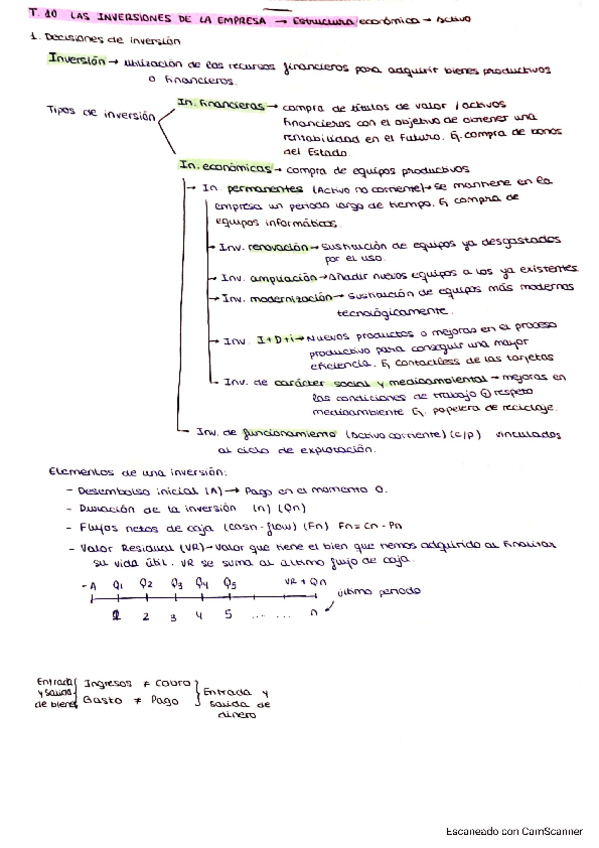 T. 10 LAS INVERSIONES DE LA EMPRESA → Estructura económica → Activo
1. Decisiones de inversión
Inversión → utilización de los recursos financieros para adquirir bienes productivos
o financieros.
Tipos de inversión
In. financieras → compra de títulos de valor / activos
financieros con el objetivo de obtener una
rentabilidad en el futuro. Ej. compra de bonos
del Estado.
In. económicas → compra de equipos productivos
→ In. permanentes (Activo no corriente) → se mantiene en la
empresa un periodo largo de tiempo. Ej compra de
equipos informáticos.
→ Inv. renovación → sustitución de equipos ya desgastados
por el uso.
→ Inv. ampliación → añadir nuevos equipos a los ya existentes
→ Inv. modernización → sustitución de equipos más modernos
tecnológicamente.
→ Inv. I+D+i → Nuevos productos o mejoras en el proceso
productivo para conseguir una mayor
eficiencia. Ej contactless de las tarjetas
Inv. de carácter social y medioambiental → mejoras en
las condiciones de trabajo respeto
medioambiente Ej. papelera de reciclaje.
Inv. de funcionamiento (activo corriente) (c/p) vinculados
al ciclo de explotación.
Elementos de una inversión:
- Desembolso inicial (A) → Pago en el momento 0.
- Duración de la inversión (n) (Qn)
- Flujos netos de caja (cash-flow) (Fn) Fn = Cn - Pn
- Valor Residual (VR) → valor que tiene el bien que hemos adquirido al finalizar
su vida útil. VR se suma al último flujo de caja.
-A Q1 Q2 Q3 Q4 Q5 VR + Qn
1 2 3 4 5 ... ... n último periodo
Entrada y salida de bienes
Ingresos ≠ Cobro
Gasto ≠ Pago
Entrada y salida de dinero
Escaneado con CamScanner